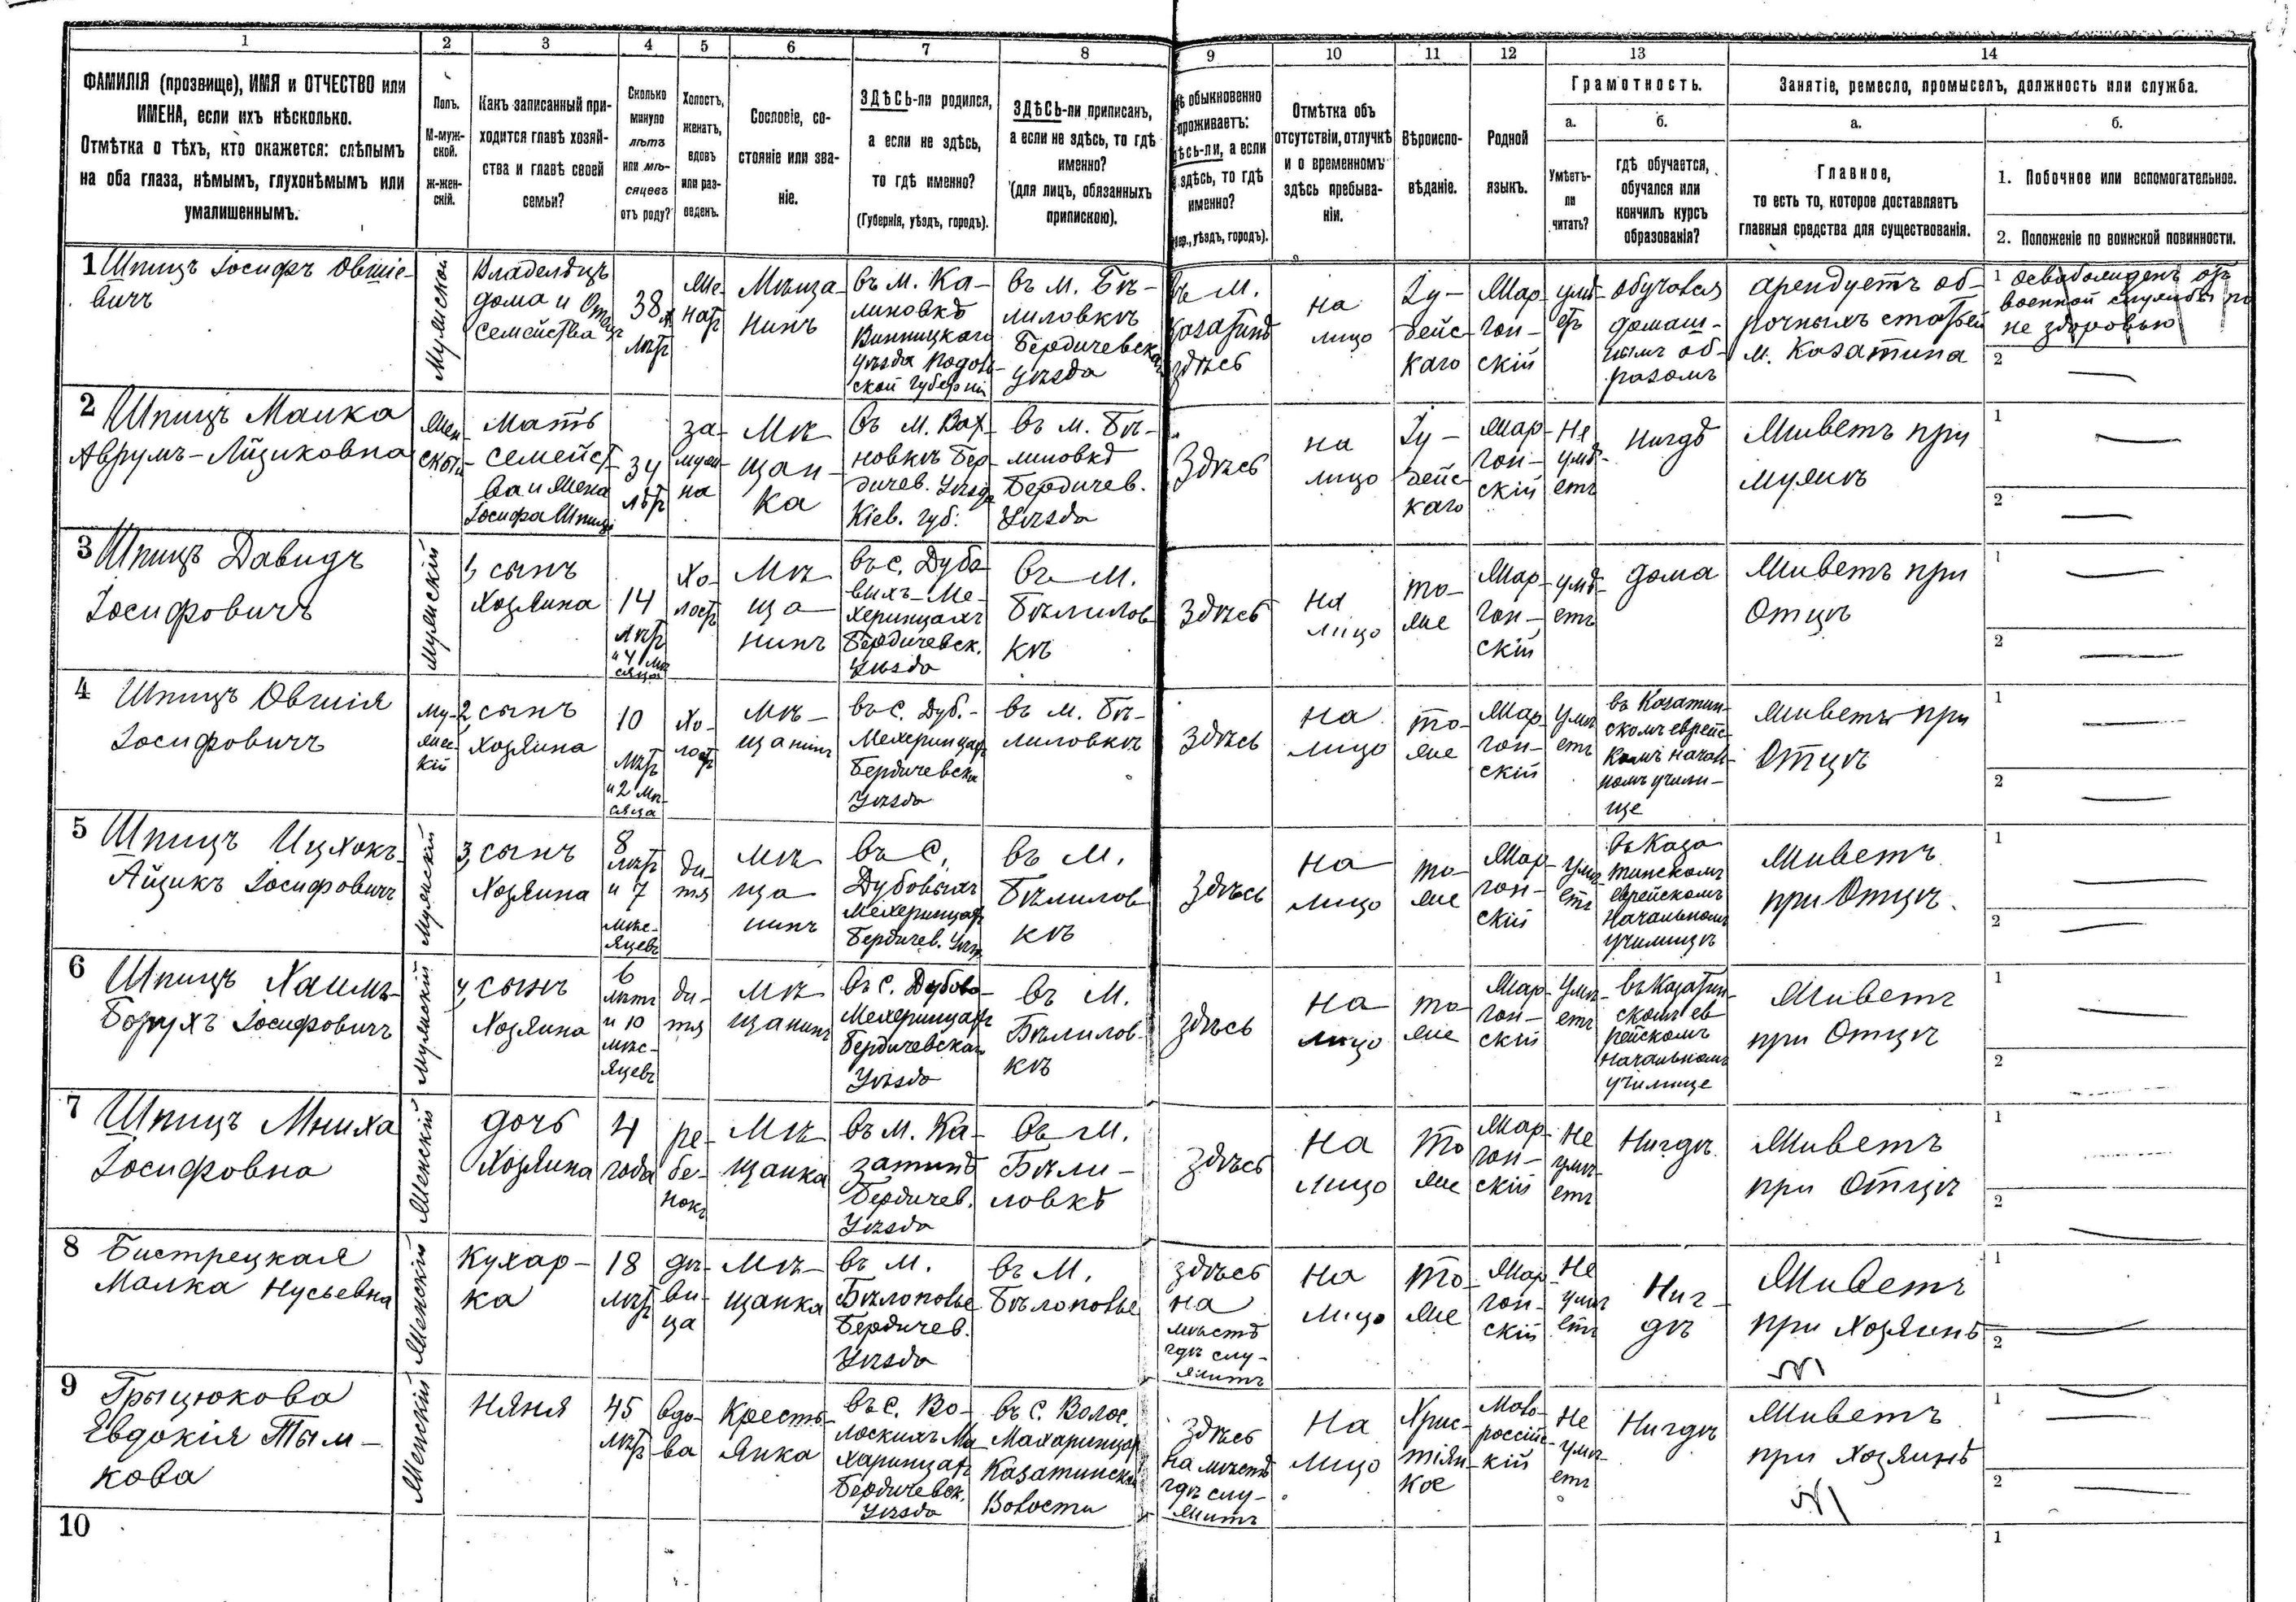 1 2 3 4 5 6 7 8 9 10 11 12 13 14
ФАМИЛІЯ (прозвище), ИМЯ и ОТЧЕСТВО или
ИМЕНА, если ихъ нѣсколько.
Отмѣтка о тѣхъ, кто окажется: слѣпымъ
на оба глаза, нѣмымъ, глухонѣмымъ или
умалишеннымъ.
Полъ.
М-муж-
ской.
ж-жен-
скій.
Какъ записанный при-
ходится главѣ хозяй-
ства и главѣ своей
семьи?
Сколько
минуло
лѣтъ
или мѣ-
сяцевъ
отъ роду?
Холостъ,
женатъ,
вдовъ
или раз-
веденъ.
Сословіе, со-
стояніе или зва-
ніе.
ЗДѢСЬ-ли родился,
а если не здѣсь,
то гдѣ именно?
(Губернія, уѣздъ, городъ).
ЗДѢСЬ-ли приписанъ,
а если не здѣсь, то гдѣ
именно?
(для лицъ, обязанныхъ
припискою).
обыкновенно
проживаетъ:
здѣсь-ли, а если
здѣсь, то гдѣ
именно?
уѣздъ, городъ).
Отмѣтка объ
отсутствіи, отлучкѣ
и о временномъ
здѣсь пребыва-
ніи.
Вѣроиспо-
вѣданіе.
Родной
языкъ.
Грамотность.
а.
Умѣетъ-
ли
читать?
б.
гдѣ обучается,
обучался или
кончилъ курсъ
образованія?
Занятіе, ремесло, промыселъ, должность или служба.
а.
Главное,
то есть то, которое доставляетъ
главныя средства для существованія.
б.
1. Побочное или вспомогательное.
2. Положеніе по воинской повинности.
1 Шпицъ Іосифъ Овшіе-
вичъ
Мужской
Владелецъ
дома и Отецъ
семейства
38
лѣтъ
Же-
натъ
Мѣща-
нинъ
въ м. Ка-
линовкѣ
Винницкаго
уѣзда Подоль-
ской губерніи
въ м. Бѣ-
лиловкѣ
Бердичевска
уѣзда
въ м.
Козатинѣ
здѣсь
на
лицо
Іу-
дейс
каго
Жар
гон-
скій
умѣ-
етъ
обучался
домаш-
нымъ об-
разомъ
арендуетъ об-
рочныхъ статьей
м. Казатина
1 освобожденъ отъ
военной службы по
не здоровью
2
2 Шпицъ Малка
Аврумъ-Лйзиковна
Жен-
скій
Мать
семейст-
ва и жена
Іосифа Шпица
34
лѣтъ
за-
муж-
на
Мѣ
щан-
ка
въ м. Вах-
новкѣ Бер-
дичев. Уѣзда
Кіев. губ.
въ м. Бѣ-
лиловкѣ
Бердичев.
Уѣзда
Здѣсь
на
лицо
Іу-
дейс
каго
Жар-
гон-
скій
Не
умѣ-
етъ
нигдѣ
Живетъ при
мужѣ
1
2
3 Шпицъ Давидъ
Іосифовичъ
Мужскій
1, сынъ
Хозяина
14
лѣтъ
и 4 мѣ
сяца
Хо-
лостъ
Мѣ
ща-
нинъ
въ с. Дубо
выхъ-Ме-
херинцахъ
Бердичевск.
Уѣзда
въ м.
Бѣлилов
кѣ
Здѣсь
На
лицо
то-
же
Жар-
гон-
скій
умѣ-
етъ
дома
Живетъ при
Отцѣ
1
2
4 Шпицъ Овшія
Іосифовичъ
Му-
жес-
кій
2 сынъ
Хозяина
10
лѣтъ
и 2 мѣ-
сяца
Хо-
лостъ
Мѣ-
щанинъ
въ с. Дуб.-
Мехеринцахъ
Бердичевска
Уѣзда
въ м. Бѣ-
лиловкѣ
Здѣсь
На
лицо
то-
же
Жар-
гон-
скій
Умѣ-
етъ
въ Казатин-
скомъ еврейс-
комъ начал-
номъ учили-
ще
Живетъ при
Отцѣ
1
2
5 Шпицъ Ицхокъ-
Айзикъ Іосифовичъ
Мужскій
3, сынъ
Хозяина
8
лѣтъ
и 7
мѣс-
яцевъ
ди-
тя
Мѣ
ща
нинъ
въ с.
Дубовыхъ
Мехеринцахъ
Бердичев. Уѣзд
въ м.
Бѣлилов
кѣ
Здѣсь
на
лицо
то-
же
Жар-
гон-
скій
Умѣ-
етъ
въ Каза
тинскомъ
еврейскомъ
Начальномъ
училищѣ
Живетъ
при Отцѣ.
1
2
6 Шпицъ Хаимъ-
Борухъ Іосифовичъ
Мужскій
4, сынъ
Хозяина
6
лѣтъ
и 10
мѣс-
яцевъ
ди-
тя
Мѣ
щанинъ
въ с. Дубово-
Мехеринцахъ
Бердичевскаго
Уѣзда
въ м.
Бѣлилов-
кѣ
здѣсь
на
лицо
то
же
Жар-
гон-
скій
Умѣ-
етъ
въ Казатин-
скомъ ев
рейскомъ
Начальномъ
училище
Живетъ
при Отцѣ
1
2
7 Шпицъ Мниха
Іосифовна
Женскій
дочь
Хозяина
4
года
ре-
бе-
нокъ
Мѣ
щанка
въ м. Ка-
затинѣ
Бердичев.
Уѣзда
въ м.
Бѣли-
ловкѣ
Здѣсь
на
лицо
то
же
Жар-
гон-
скій
Не
умѣ-
етъ
Нигдѣ
Живетъ
при Отцѣ
1
2
8 Бистрецкая
Малка Нусьевна
Женскій
Кухар-
ка
18
лѣтъ
дѣ-
ви-
ца
Мѣ-
щанка
въ м.
Бѣлополье
Бердичев.
Уѣзда
въ м.
Бѣлополье
здѣсь
на
мѣстѣ
гдѣ слу-
житъ
На
лицо
то-
же
Жар-
гон-
скій
Не
умѣ
етъ
Ниг-
дѣ
Живетъ
при Хозяинѣ
1
2
9 Грыцюкова
Евдокія Тым-
кова
Женскій
Няня
45
лѣтъ
вдо-
ва
Кресть-
янка
въ с. Во-
лоскихъ Ма
харинцахъ
Бердичевск.
Уѣзда
въ с. Волос.
Махаринцахъ
Казатинской
Волости
Здѣсь
на мѣстѣ
гдѣ слу-
житъ
На
лицо
Хрис-
тіян-
кое
Мало-
россійс-
кій
Не
умѣ-
етъ
Нигдѣ
Живетъ
при Хозяинѣ
1
2
10
1